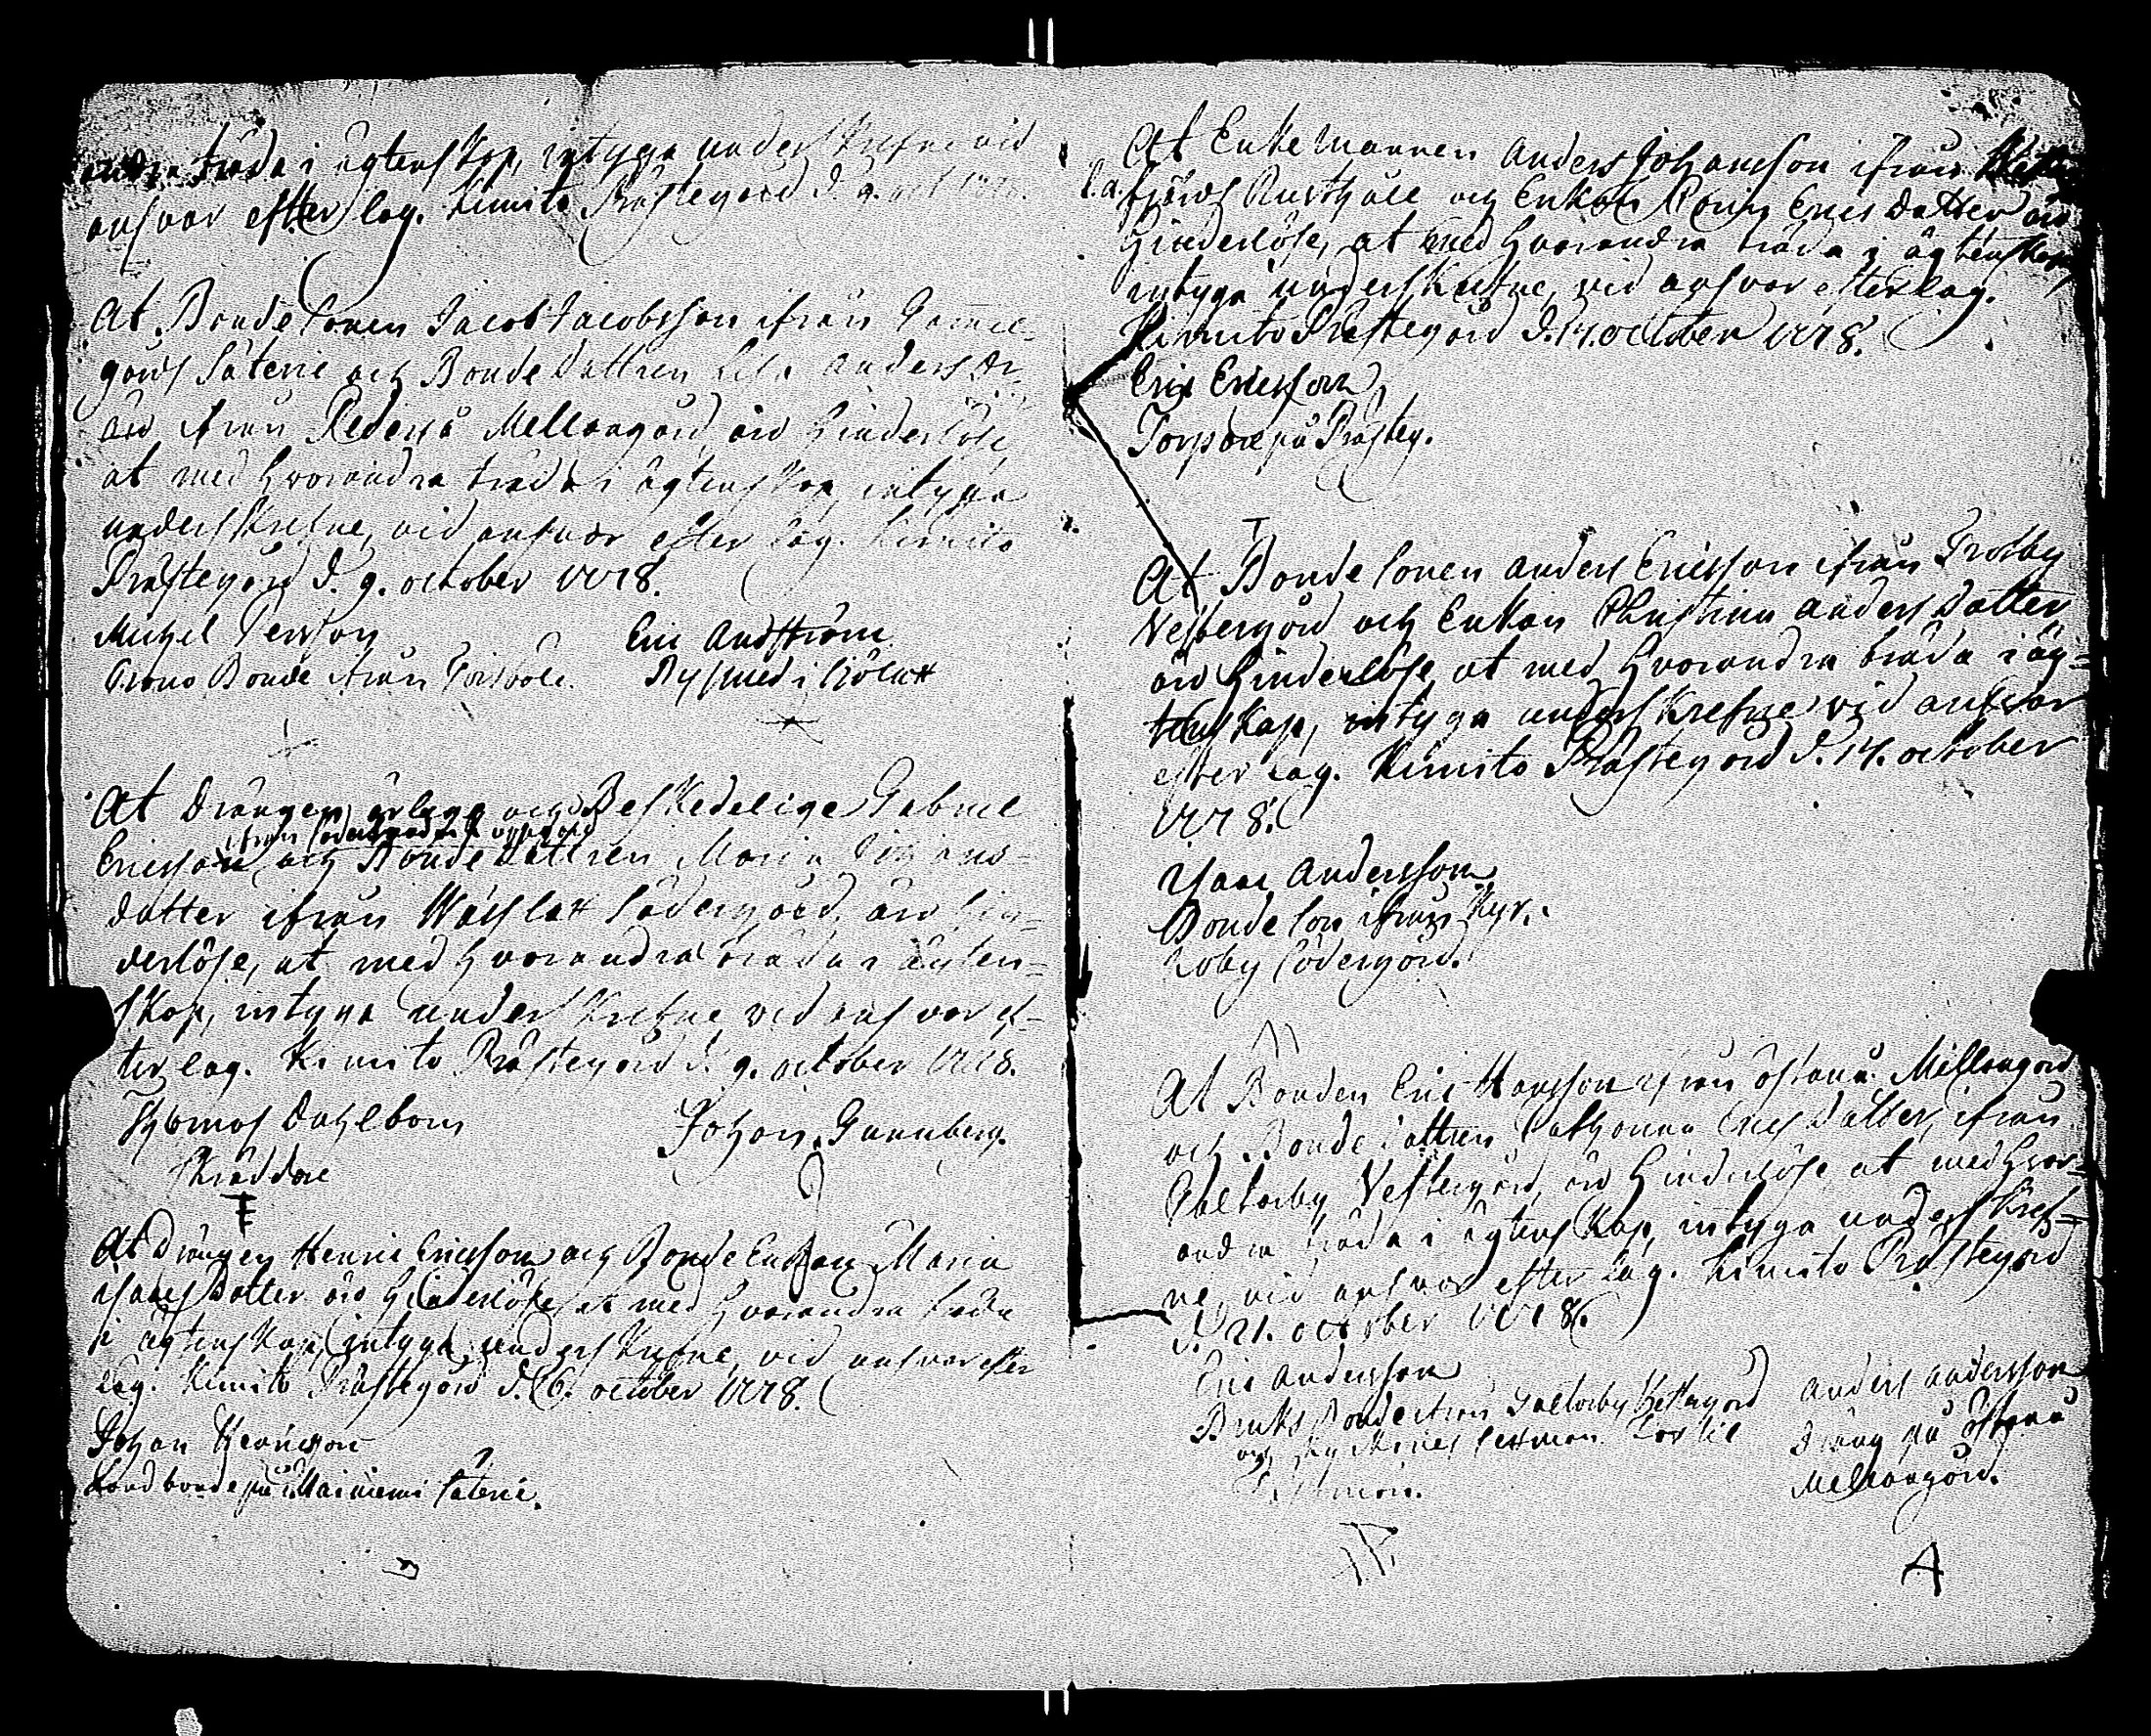 andra träda i ägtenskap, intyga underskrefne vid
answar efter lag. Kimito Prästegård d. 9. oct 1778.
At Bonde sonen Jacob Jacobsson ifrån Gammel-
gårds Säterie och Bonde dattren Lisa Anders dr
äro ifrån Rederså Mellangård äro hinderlöse
at med hvarandra träda i ägtenskap, intyga
underskrefne, vid answar efter lag. Kimito
Prästegård d. 9. october 1778.
Michel Persson
Bonde ifrån
Eric Andström
At Drängen ärlige och Beskedelige Gabriel
ifrån Uppgård
Ericsson och Bonde Dattren Maria Johans-
datter ifrån Södergård, äro hin-
derlöse, at med hvarandra träda i ägten-
skap, intyga underskrefne vid answar ef-
ter lag. Kimito Prästegård d. 9. october 1778.
Thomas Dahlbom
Skräddare
Johan Grannberg.
At Drängen Henric Ericsson och Bonde Enkan Maria
Isaacs Dotter äro hinderlöse at med hvarandra träda
i ägtenskap, intyga underskrefne, vid answar efter
lag. Kimito Prästegård d. 6. october 1778.
Johan Henricsson
Landbonde på Mainiemi säterie.
At Enkemannen Anders Johansson ifrån
Rusthåll och Enkan Erics datter äro
hinderlöse, at med hvarandra träda i ägtenskap
intyga underskrefne, vid answar efter lag.
Kimito Prästegård d. 14. october 1778.
Eric Ericsson
Torpare på Prästeg.
At Bonde sonen Anders Ericsson ifrån Trotby
Vestergård och Enkan Christina Anders datter
äro hinderlöse, at med hvarandra träda i äg-
tenskap, intyga underskrefne vid answar
efter lag. Kimito Prästegård d. 14. october
1778.
Isaac Andersson
Bonde son ifrån Kyr-
koby Södergård.
At Bonden Eric Hansson ifrån Östanå Mellangård
och Bonde dattren Catharina Erics datter, ifrån
Galtarby Vestergård, äro hinderlöse at med hvar-
andra träda i ägtenskap, intyga underskref-
ne, vid answar efter lag. Kimito Prästegård
d. 21. october 1778.
Eric Andersson
Bonde ifrån Galtarby Vestergård
Anders Andersson
Dräng på Östanå
Mellangård.
A